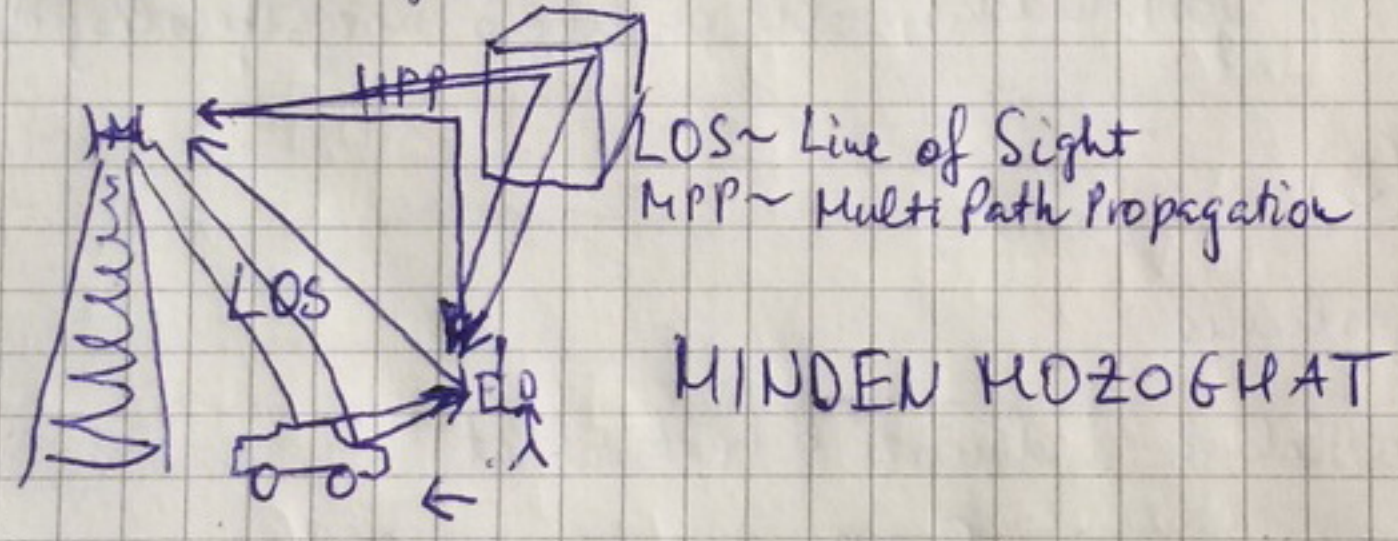 MPP
LOS~ Line of Sight
MPP~ Multi Path Propagation
LOS
MINDEN MOZOGHAT